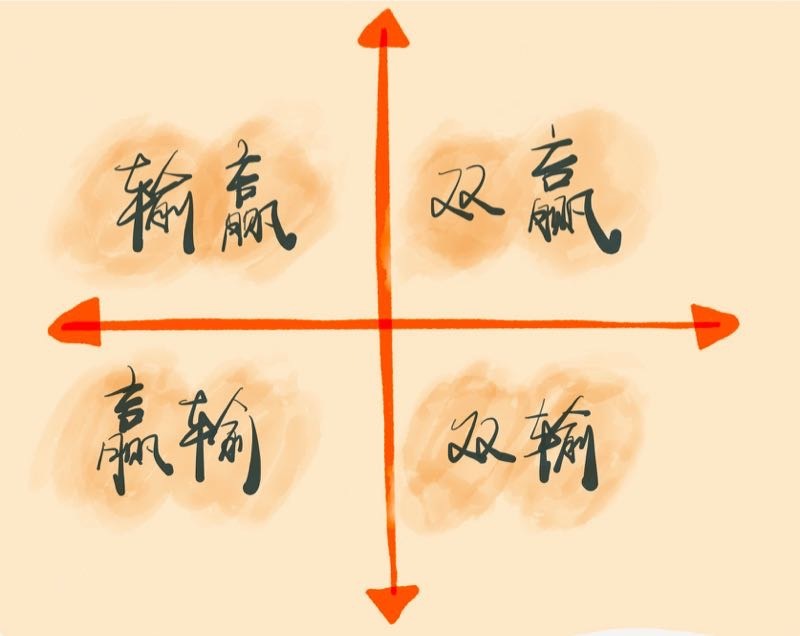 输赢
双赢
赢输
双输